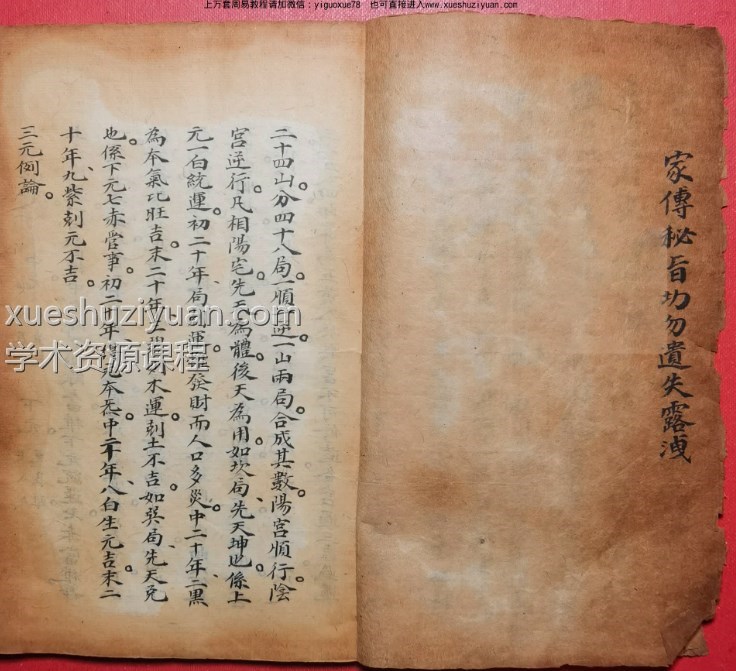 上万套周易教程请加微信：yiguoxue78 也可直接进入www.xueshuziyuan.com
家傳秘旨切勿遺失露洩
二十四山分四十八局一順一逆一山兩局合成其數陽宮順行陰
宮逆行凡相陽宅先天為體後天為用如坎局先天坤也係上
元一白統運初二十年局運發財而人口多災中二十年二黑
為本氣比旺吉末二十年三碧木運剋土不吉如巽局先天兌
也係下元七赤管事初二十年本炁中二十年八白生元吉末二
十年九紫剋元不吉
三元例論
xueshuziyuan.com
学术资源课程